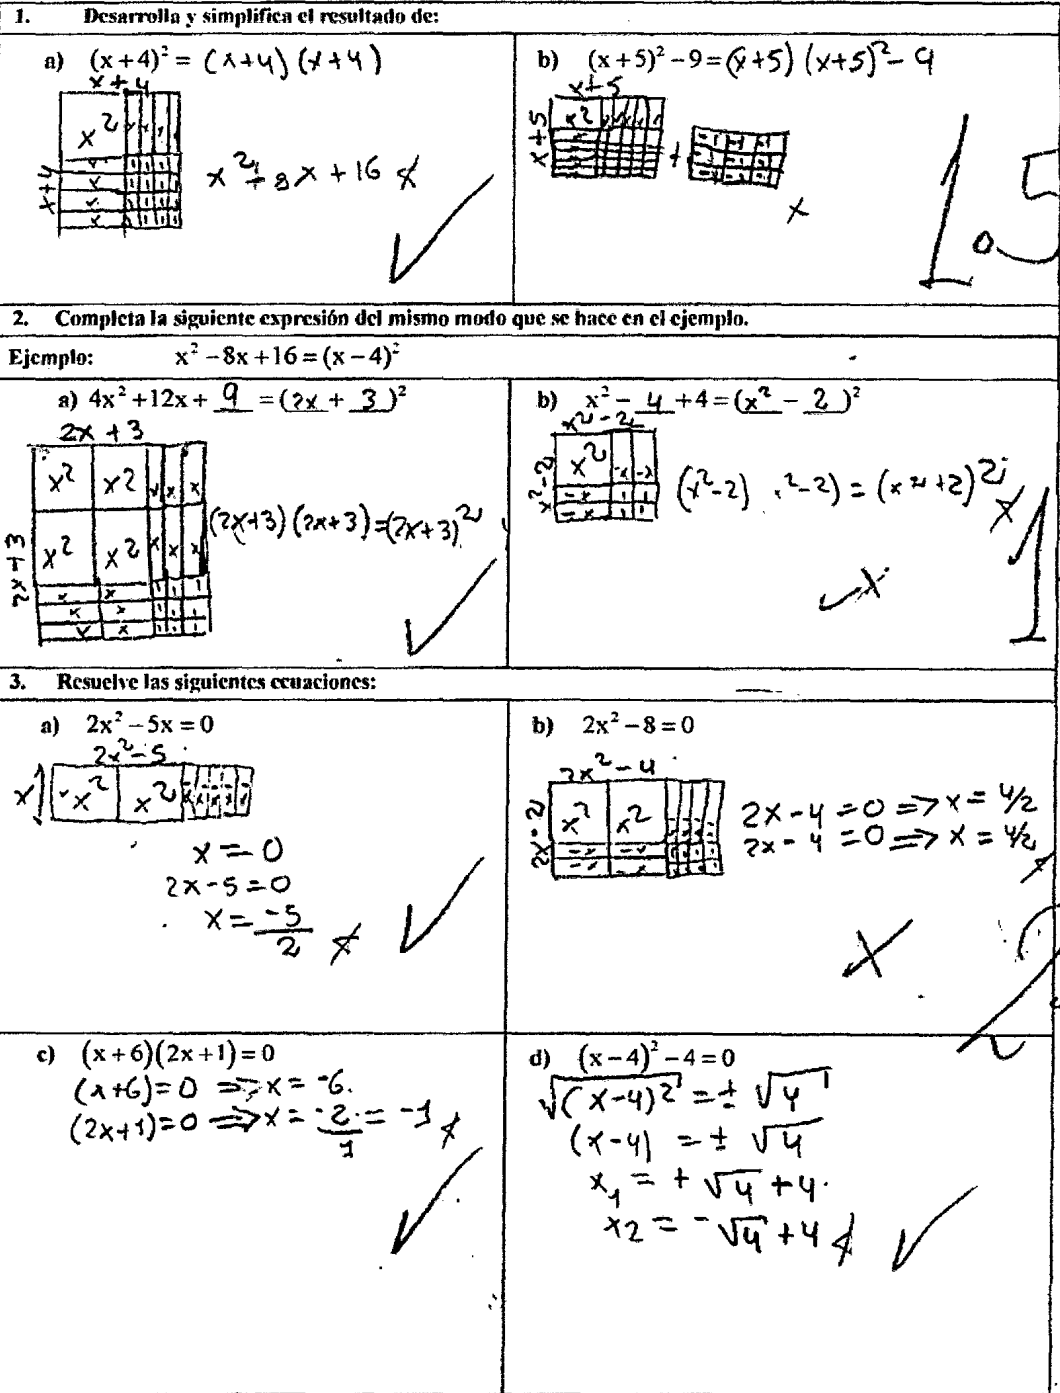 1. Desarrolla y simplifica el resultado de:
a) (x+4)² = (x+4)(x+4)
x+4
x+4
x²
x² + 8x + 16
b) (x+5)² − 9 = (x+5)(x+5)² − 9
x+5
x+5
x²
+
1.5
2. Completa la siguiente expresión del mismo modo que se hace en el ejemplo.
Ejemplo: x² − 8x + 16 = (x − 4)²
a) 4x² + 12x + 9 = (2x + 3)²
2x + 3
x² x² x x x
2x+3
x² x² x x x
(2x+3)(2x+3)=(2x+3)²
b) x² − 4 + 4 = (x² − 2)²
x² − 2
x² −x −x
x²−2
(x²−2) ²−2) = (x²+2)²
1
3. Resuelve las siguientes ecuaciones:
a) 2x² − 5x = 0
2x² − 5
x
x² x²
x = 0
2x − 5 = 0
x = −5/2
b) 2x² − 8 = 0
2x² − 4
2x − 2
x² x²
2x − 4 = 0 => x = 4/2
2x − 4 = 0 => x = 4/2
c) (x+6)(2x+1) = 0
(x+6) = 0 => x = −6.
(2x+1) = 0 => x = −2/1 = −1
d) (x−4)² − 4 = 0
√(x−4)² = ± √4
(x−4) = ± √4
x₁ = + √4 + 4.
x2 = − √4 + 4